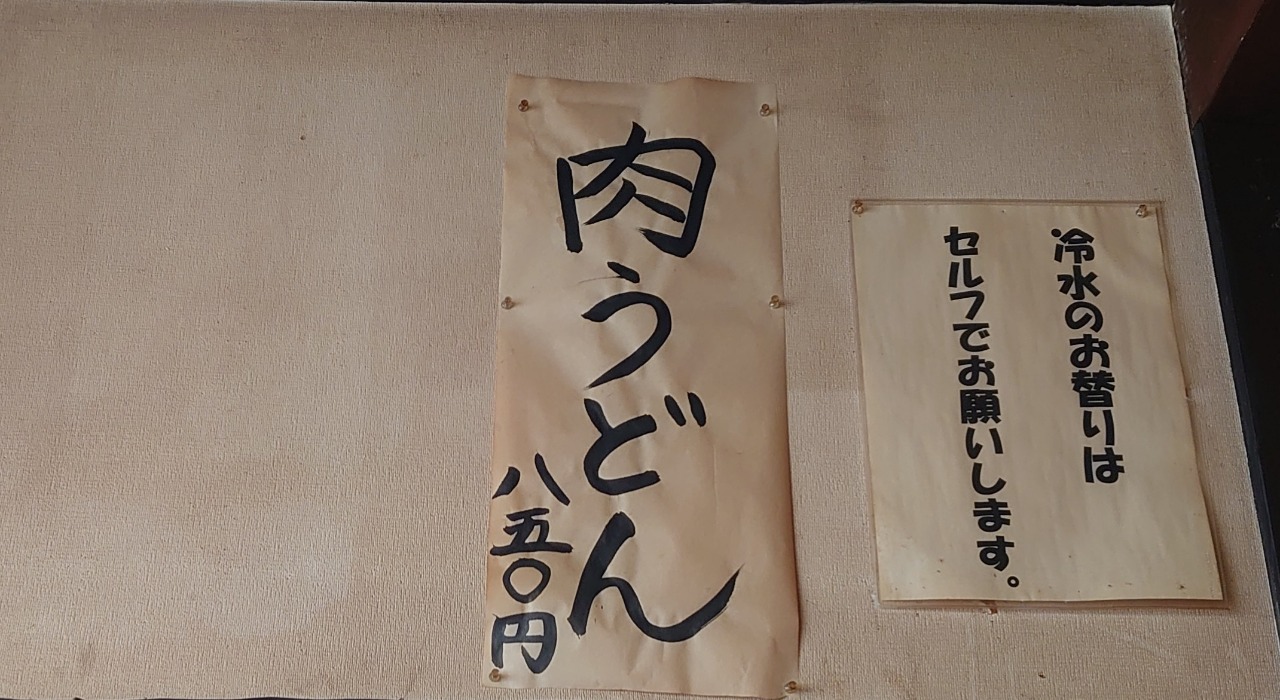 冷水のお替りは
セルフでお願いします。
肉うどん
八五〇円